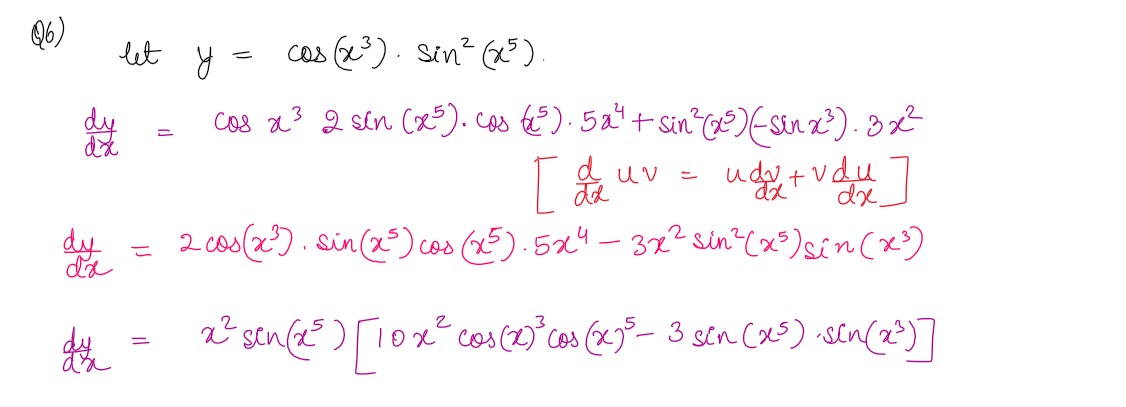 Q6)
let y = cos(x³) · sin² (x⁵).
dy/dx = cos x³ 2 sin (x⁵). cos (x⁵) · 5x⁴ + sin²(x⁵)(-sin x³) · 3x²
[ d/dx uv = u dv/dx + v du/dx ]
dy/dx = 2 cos(x³) · sin(x⁵) cos (x⁵) · 5x⁴ - 3x² sin²(x⁵) sin (x³)
dy/dx = x² sin(x⁵) [10x² cos(x)³ cos (x)⁵ - 3 sin (x⁵) · sin(x³)]